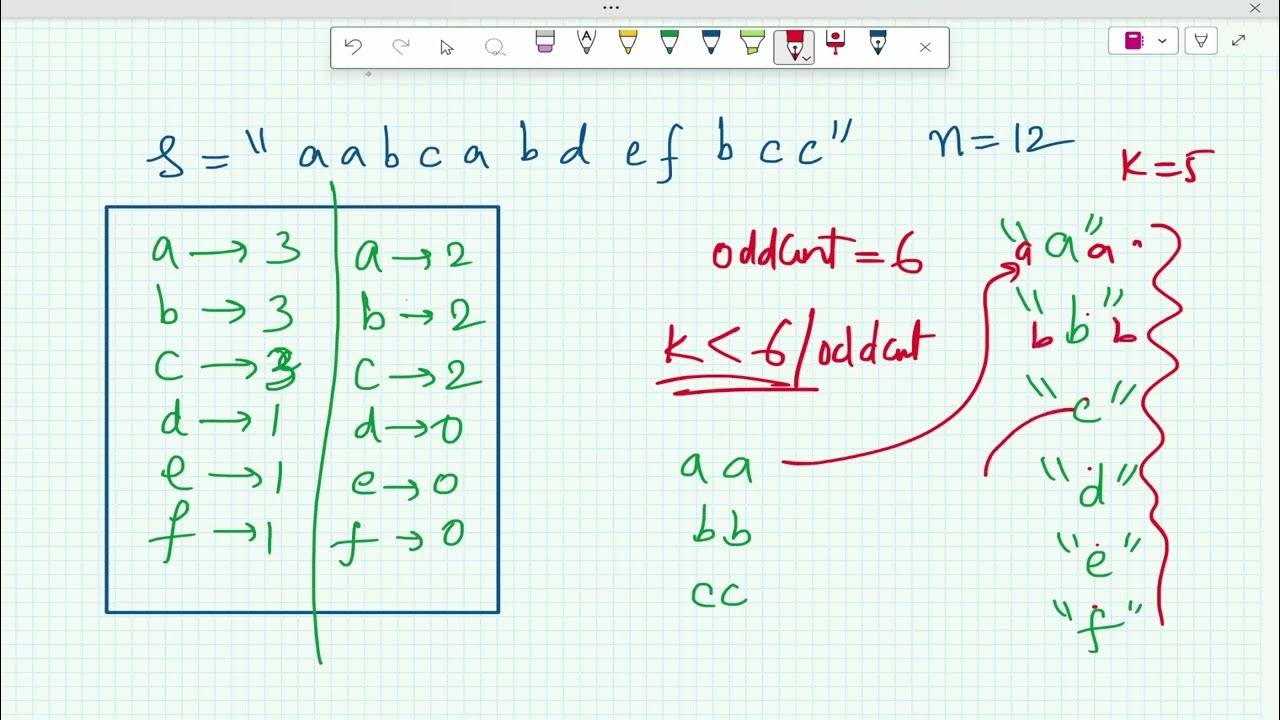 S = " a a b c a b d e f b c c " n = 12
K = 5
a → 3 a → 2
b → 3 b → 2
c → 3 c → 2
d → 1 d → 0
e → 1 e → 0
f → 1 f → 0
oddcnt = 6
K < 6/oddcnt
a a
b b
c c
"a a a"
"b b b"
"c"
"d"
"e"
"f"